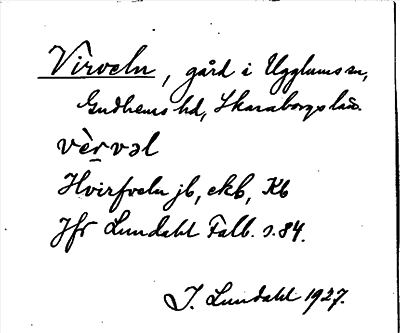 Virveln, gård i Ugglums sn,
Gudhems hd, Skaraborgs län.
vèrvəl
Hvirfveln jb, ekb, Kb
Jfr Lundahl Falb. s. 84.
I. Lundahl 1927.